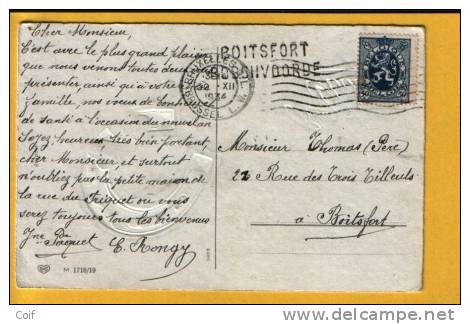 Cher Monsieur,
C'est avec le plus grand plaisir
que nous venons toutes deux
présenter, ainsi qu'à votre
famille, nos vœux de bonheur
de santé à l'occasion du nouvel an
Soyez heureux très bien portant,
cher Monsieur, et surtout
n'oubliez pas la petite maison de
la rue du où vous
serez toujours tous les bienvenus
Jne Paquet E. Rongy
M 1718/19
BRUXELLES
XII
1934
BRUSSEL
BOITSFORT
BOSCHVOORDE
Monsieur Thomas (Père)
22 Rue des Trois Tilleuls
a Boitsfort
Coif
www.delcampe.net